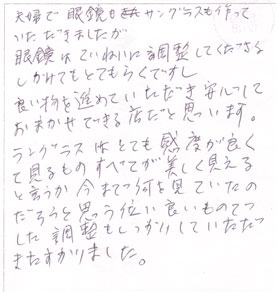 夫婦で眼鏡もサングラスも作って
いただきましたが
眼鏡はていねいに調整してくださる
しかけてもとてもらくですし
良い物を進めていただき安心して
おまかせできる店だと思います。
サングラスはとても感度が良く
て見るものすべてが美しく見える
と言うか今まで何を見ていたの
だろうと思う位い良いものでで
した調整もしっかりしていただ
きたすかりました。